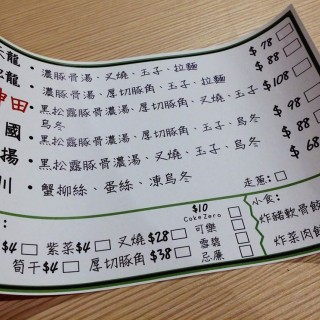 龍・濃豚骨湯、叉燒、玉子、拉麵 $78
龍・濃豚骨湯、厚切豚角、玉子、拉麵 $88
神田・黑松露豚骨濃湯、厚切豚角、叉燒、玉子、烏冬 $108
國・黑松露豚骨濃湯、厚切豚角、玉子、烏冬 $98
揚・黑松露豚骨濃湯、叉燒、玉子、烏冬 $88
川・蟹柳絲、蛋絲、凍烏冬 $68
走蔥：
$4 紫菜$4 叉燒$28
筍干$4 厚切豚角$38
$10
Coke Zero
可樂
雪碧
忌廉
小食：
炸豬軟骨餃
炸菜肉餃